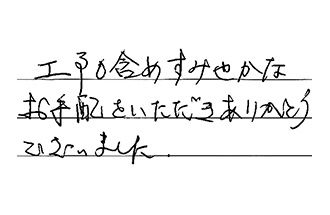 工事の含めすみやかな
お手配をいただきありがとう
ございました.